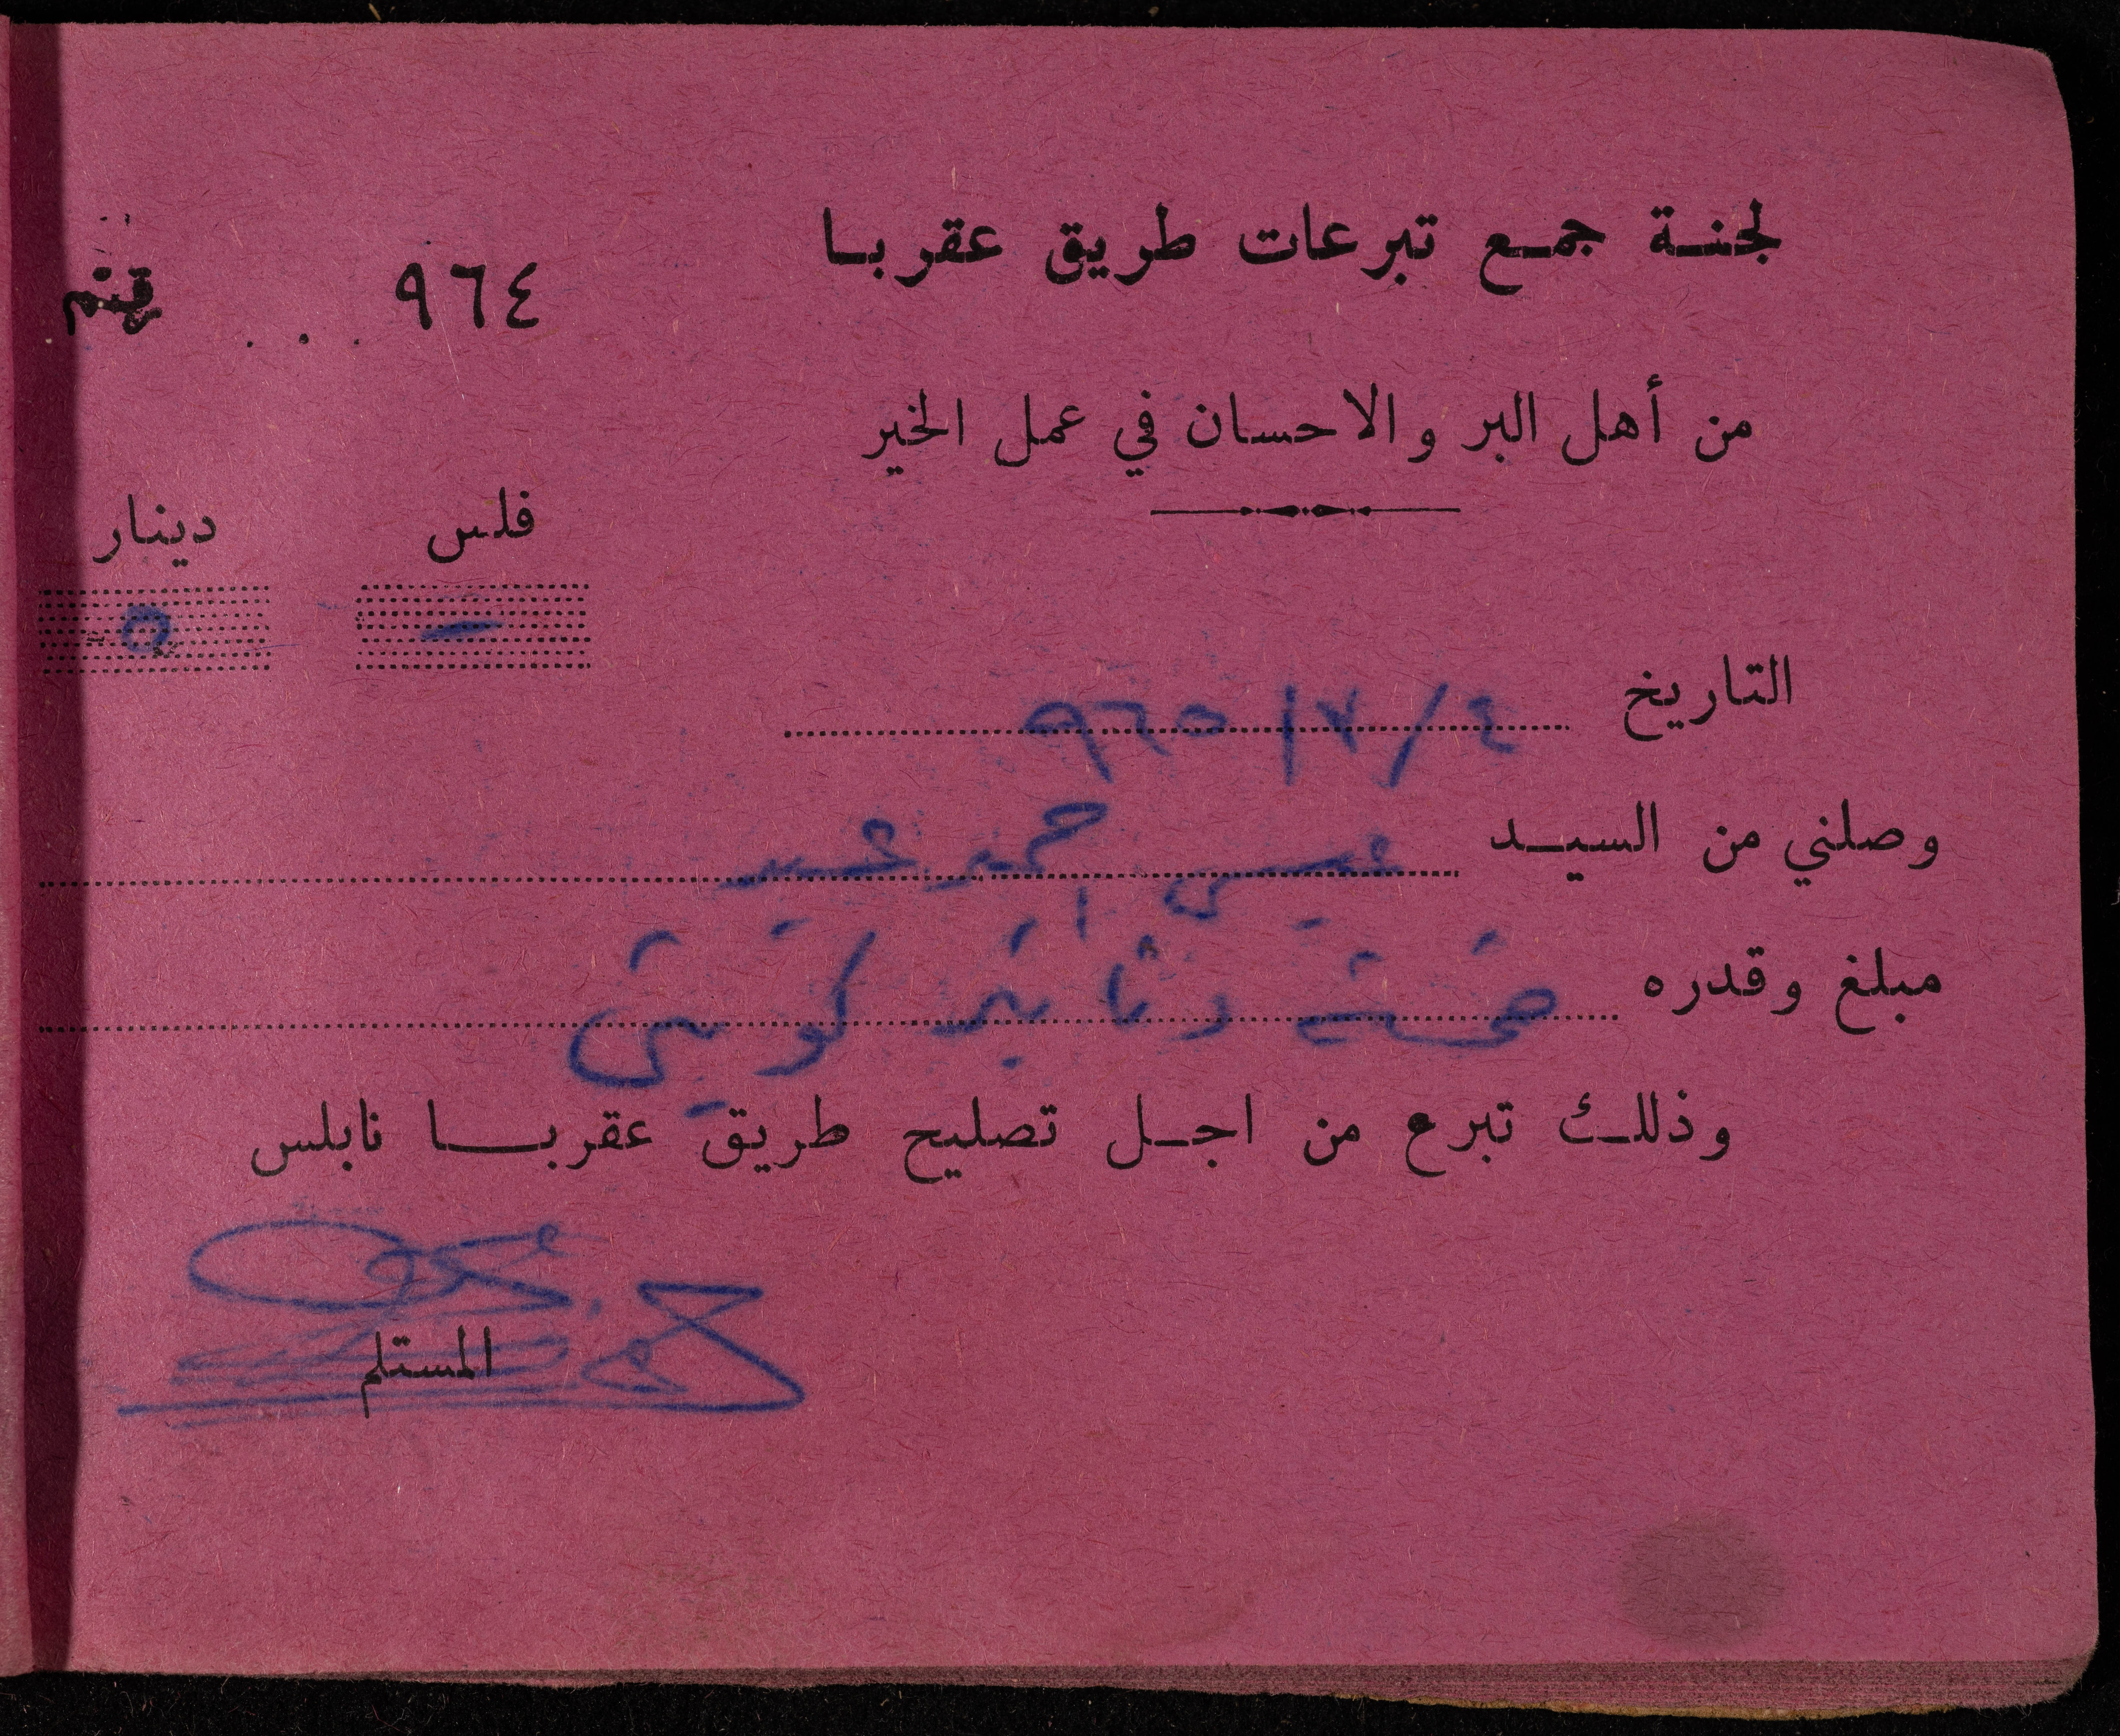 لجنة جمع تبرعات طريق عقربا
رقم ٩٦٤
من أهل البر والاحسان في عمل الخير
فلس دينار
— ٥
التاريخ ٤/٧/٩٦٥
وصلني من السيد عيسى احمد عبيد
مبلغ وقدره خمسة دنانير كويتي
وذلك تبرع من اجل تصليح طريق عقربا نابلس
المستلم